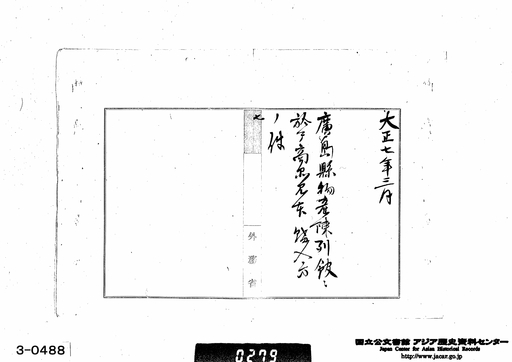 大正七年三月
廣島縣物産陳列館ニ
於テ商品見本購入方
ノ件
七
外務省
3-0488
0279
国立公文書館 アジア歴史資料センター
Japan Center for Asian Historical Records
http://www.jacar.go.jp